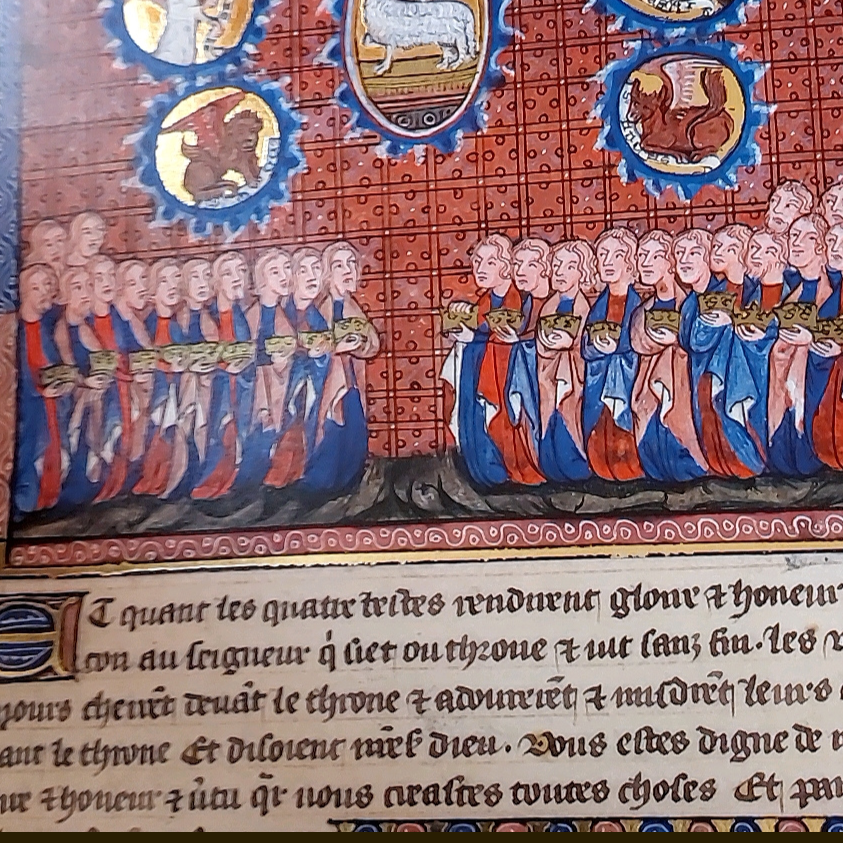 ET quant les quatre bestes rendirent gloire ⁊ honeur
con au seigneur q̇ siet ou throne ⁊ uit sanz fin. les v
hōurs cheīrēt deuāt le throne ⁊ aourerēt ⁊ misdrēt leurs
ant le throne Et disoient n̄re s̄ dieu. Vous estes digne de r
⁊ honeur ⁊ u̇tu q̄r uous creastes toutes choses Et par